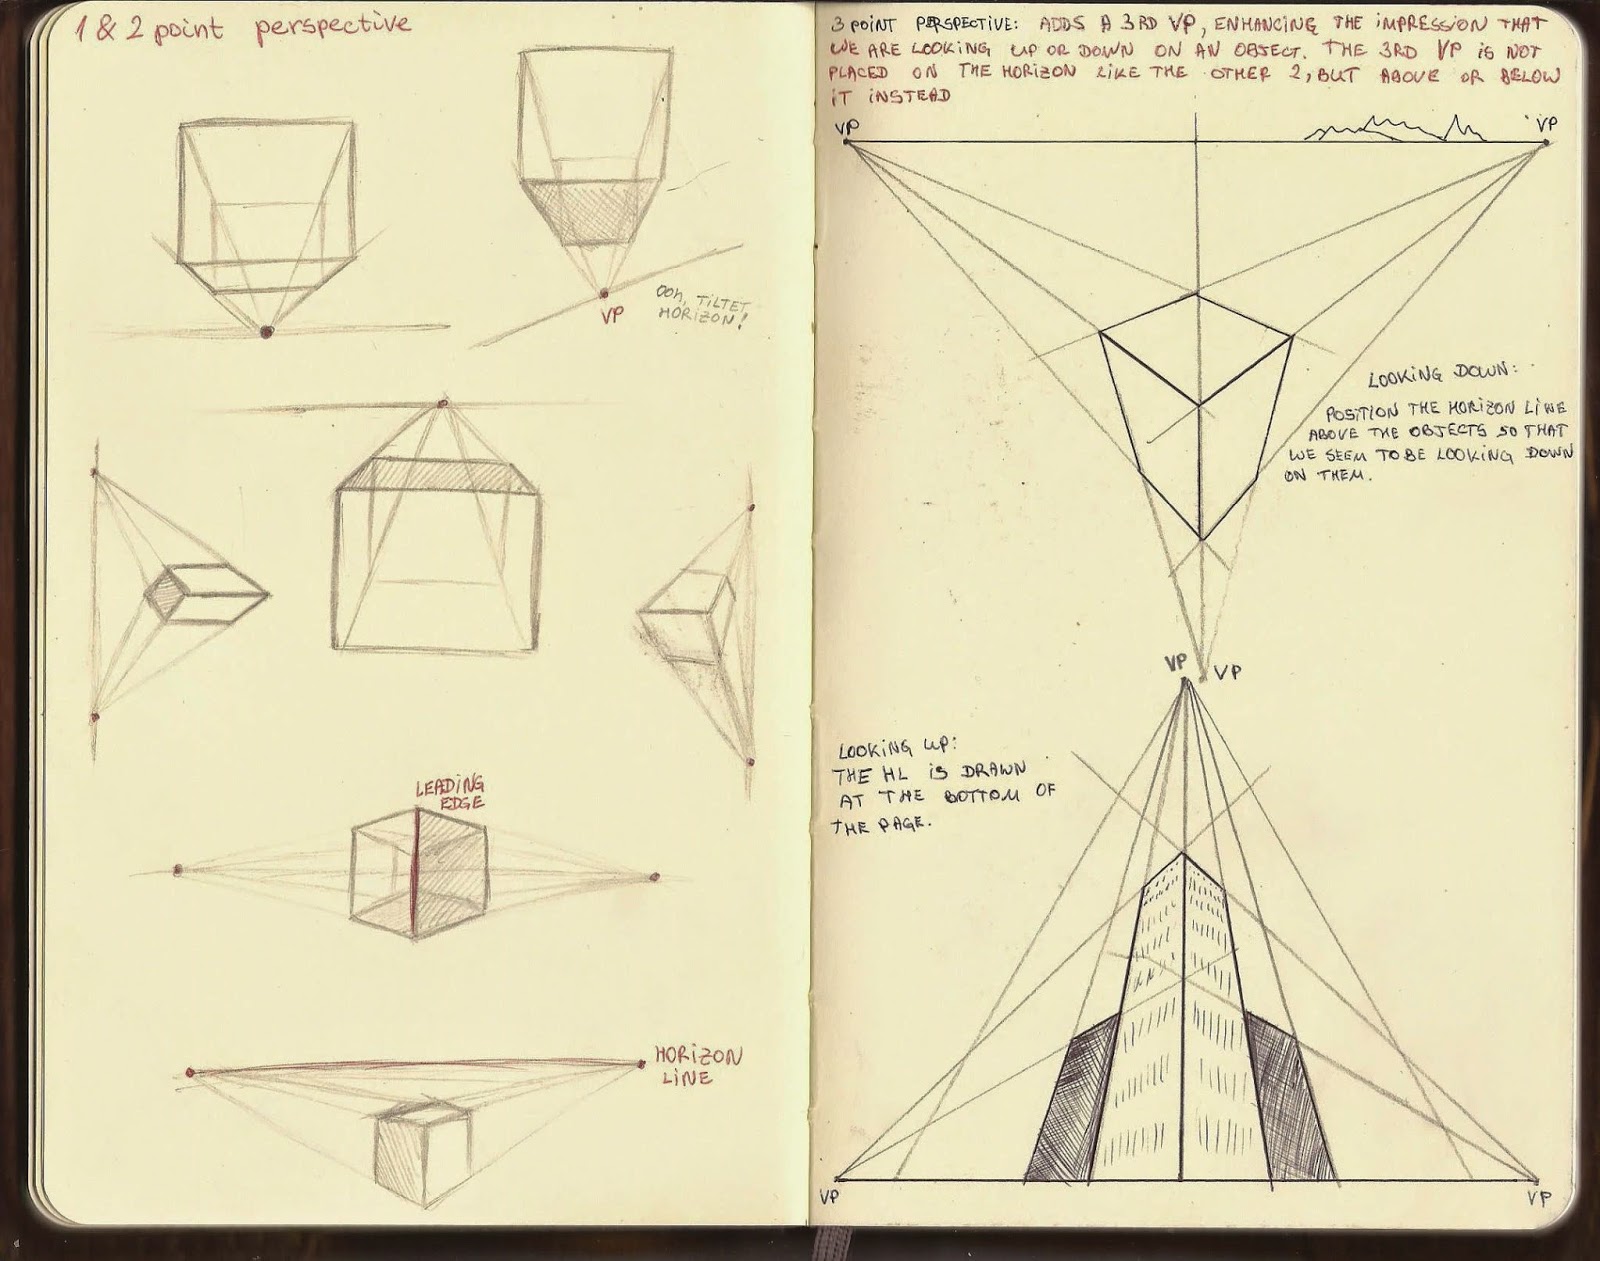 1 & 2 point perspective
VP
OOH, TILTET
HORIZON!
LEADING
EDGE
HORIZON
LINE
3 POINT PERSPECTIVE: ADDS A 3RD VP, ENHANCING THE IMPRESSION THAT
WE ARE LOOKING UP OR DOWN ON AN OBJECT. THE 3RD VP IS NOT
PLACED ON THE HORIZON LIKE THE OTHER 2, BUT ABOVE OR BELOW
IT INSTEAD
VP
VP
LOOKING DOWN:
POSITION THE HORIZON LINE
ABOVE THE OBJECTS SO THAT
WE SEEM TO BE LOOKING DOWN
ON THEM.
VP
VP
LOOKING UP:
THE HL IS DRAWN
AT THE BOTTOM OF
THE PAGE.
VP
VP